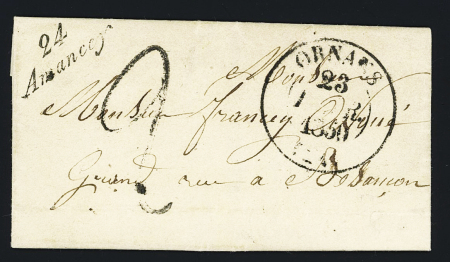 24
Amancey
ORNANS
23
1850
2
Monsieur
Monsieur francey
Grande rue à Besançon